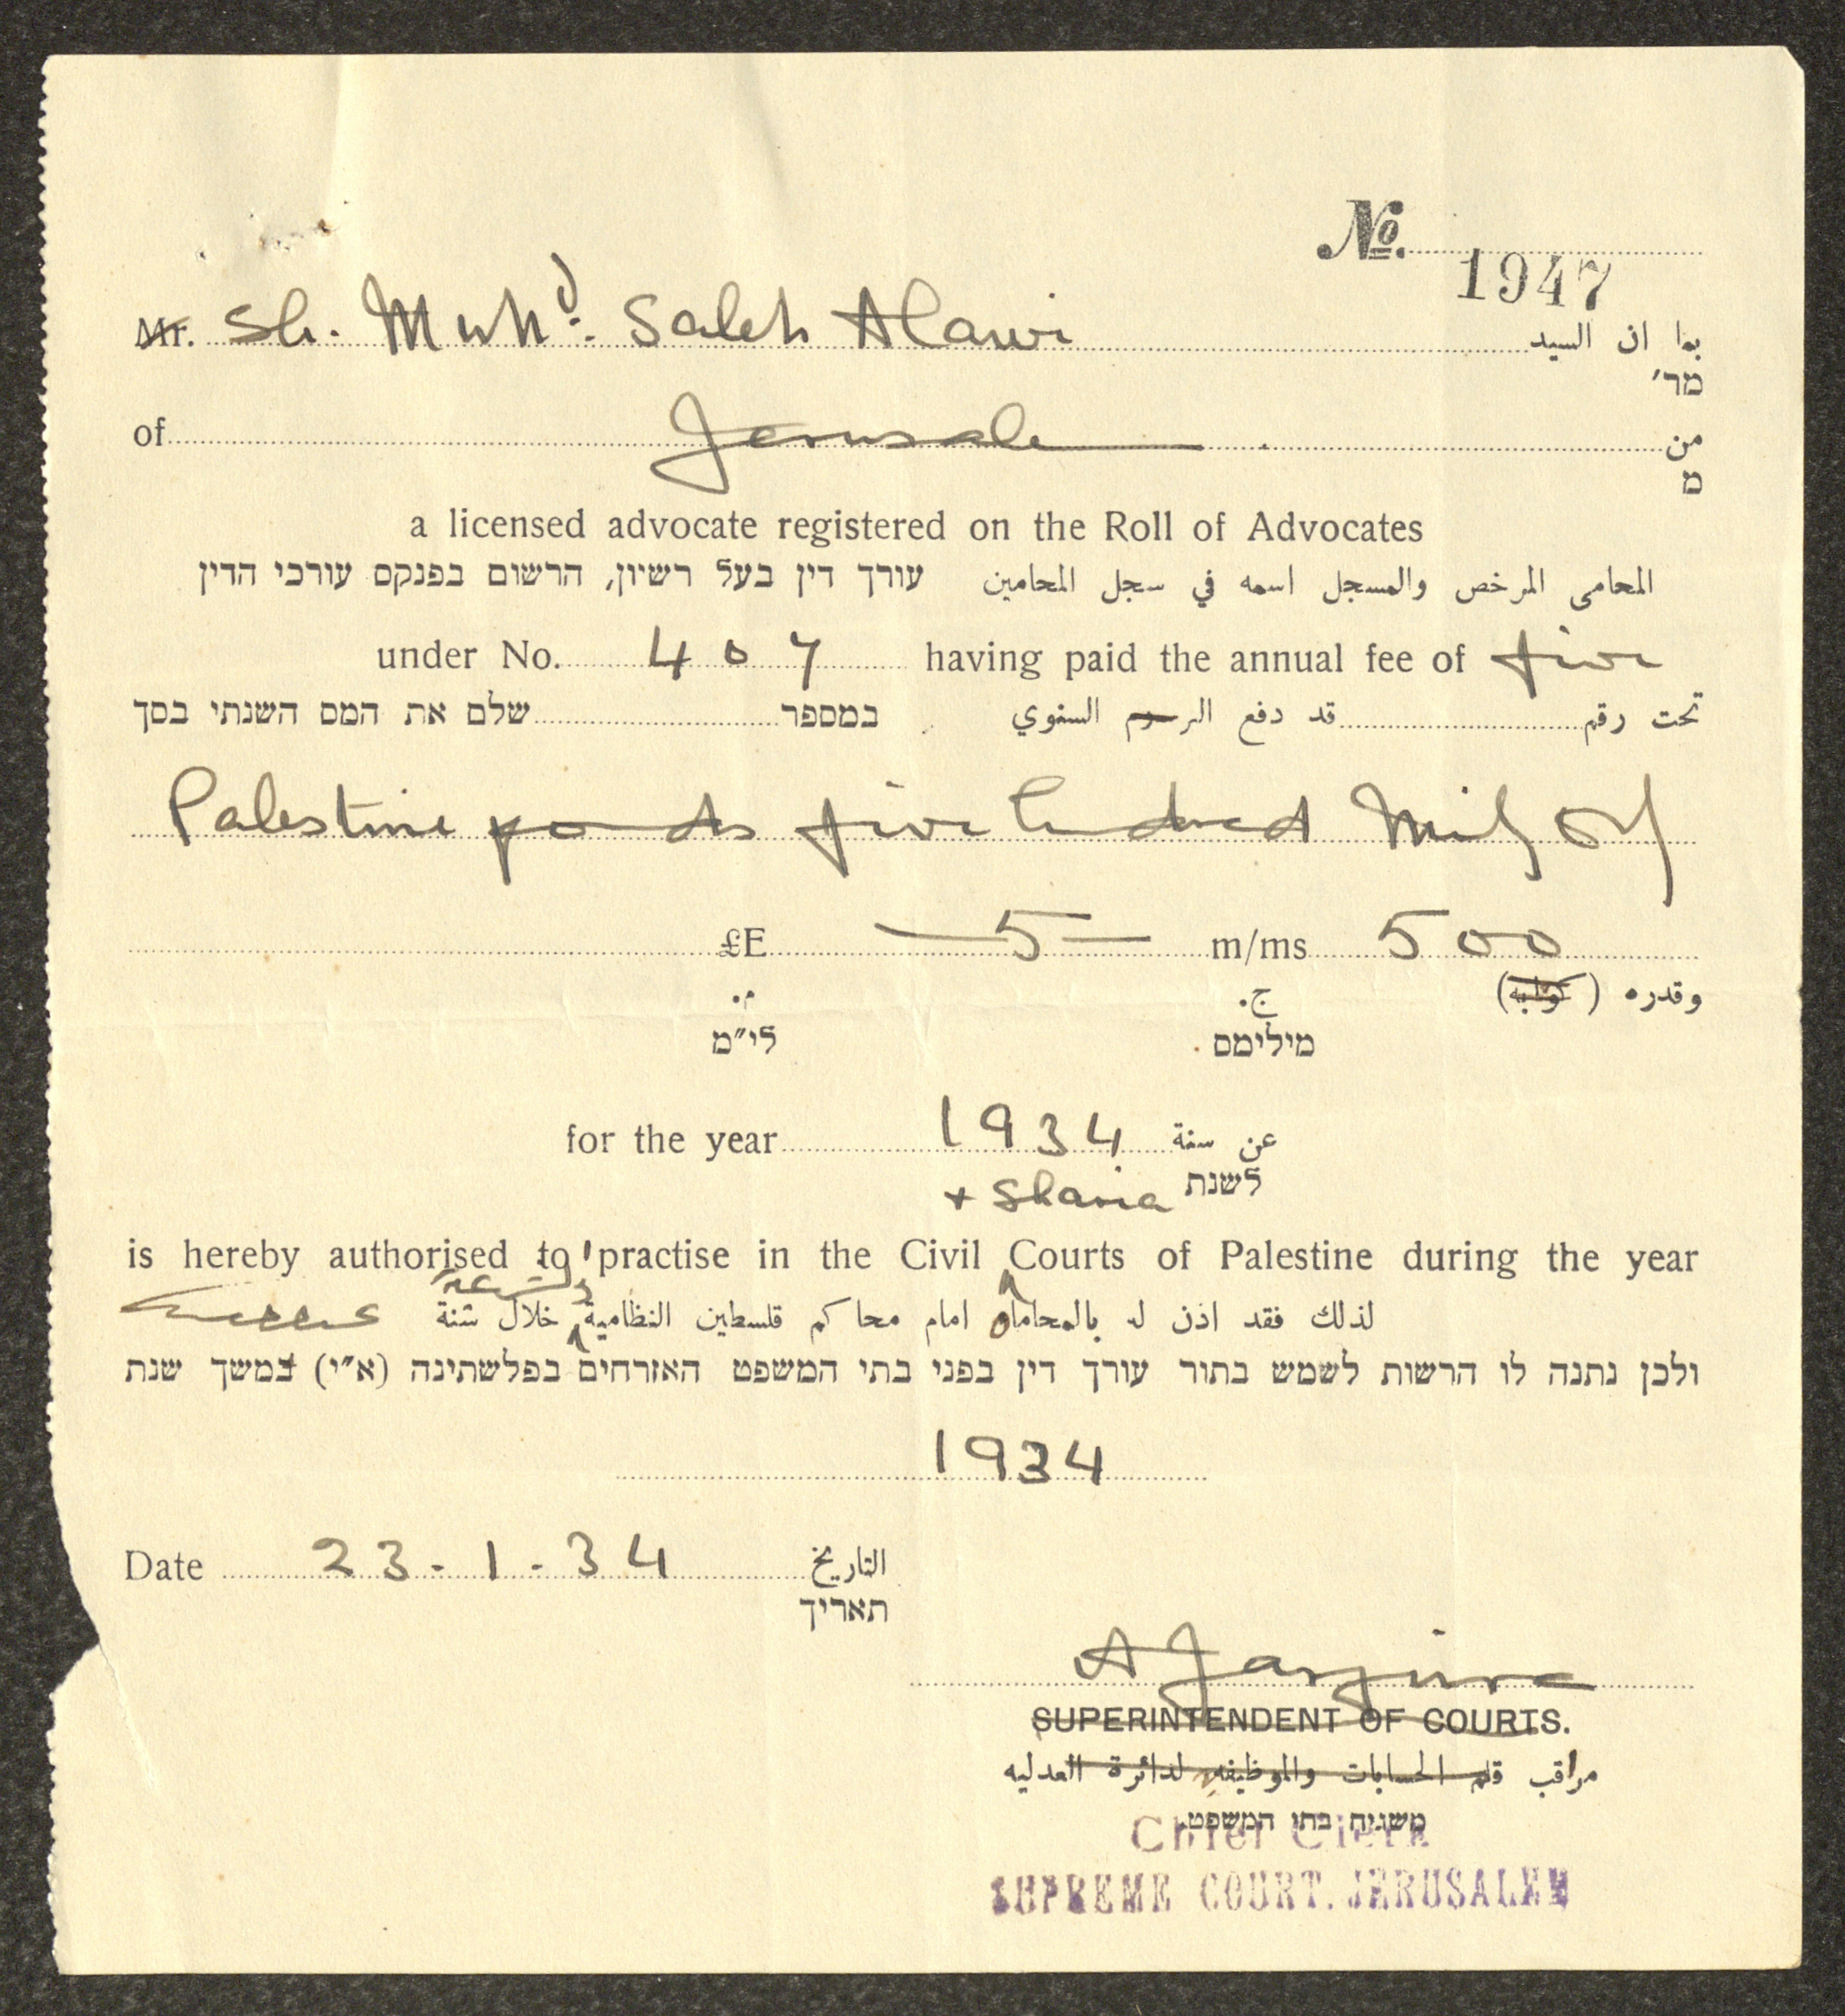 No. 1947
Mr. Sh. Muhd. Saleh Alawi بما ان السيد
מר׳
of Jerusalem من
מ
a licensed advocate registered on the Roll of Advocates
المحامى المرخص والمسجل اسمه في سجل المحامين עורך דין בעל רשיון, הרשום בפנקס עורכי הדין
under No. 407 having paid the annual fee of five
تحت رقم قد دفع الرسوم السنوي במספר שלם את המס השנתי בסך
Palestine pounds five hundred Mils only
£E 5 m/ms 500
وقدره (كتابة) ج. م.
מילימס לי״מ
for the year 1934 عن سنة
לשנת
+ Sharia
is hereby authorised to practise in the Civil Courts of Palestine during the year
والشرعية
لذلك فقد اذن له بالمحاماه امام محاكم فلسطين النظامية خلال سنة
ולכן נתנה לו הרשות לשמש בתור עורך דין בפני בתי המשפט האזרחים בפלשתינה (א״י) במשך שנת
1934
Date 23-1-34 التاريخ
תאריך
SUPERINTENDENT OF COURTS.
مراقب قلم الحسابات والموظفين لدائرة العدليه
משגיח בתי המשפט
Chief Clerk
SUPREME COURT. JERUSALEM